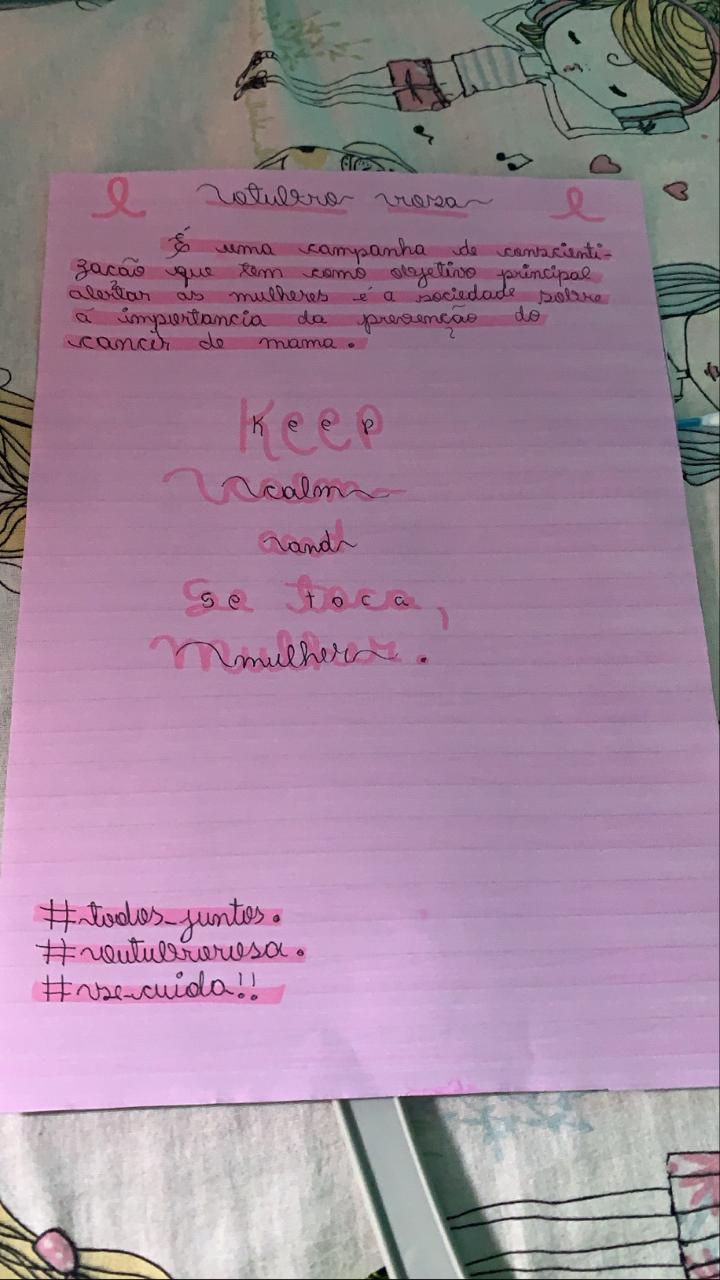 outubro rosa
É uma campanha de conscienti-
zacão que tem como objetivo principal
alertar as mulheres é a sociedade sobre
á importancia da prevenção do
cancer de mama.
Keep
calm
and
se toca,
mulher.
#todos_juntos.
#outubrorosa.
#se_cuida!!